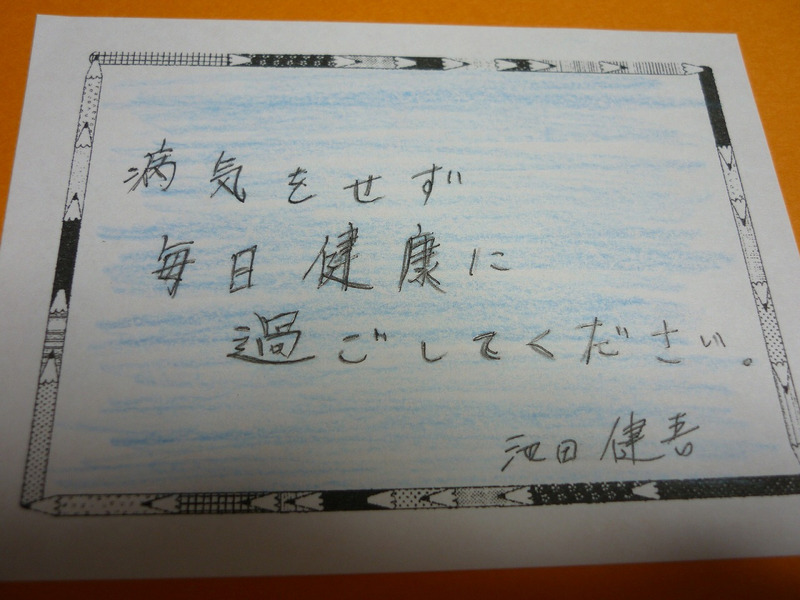 病気をせず
毎日健康に
過ごしてください。
池田健吾